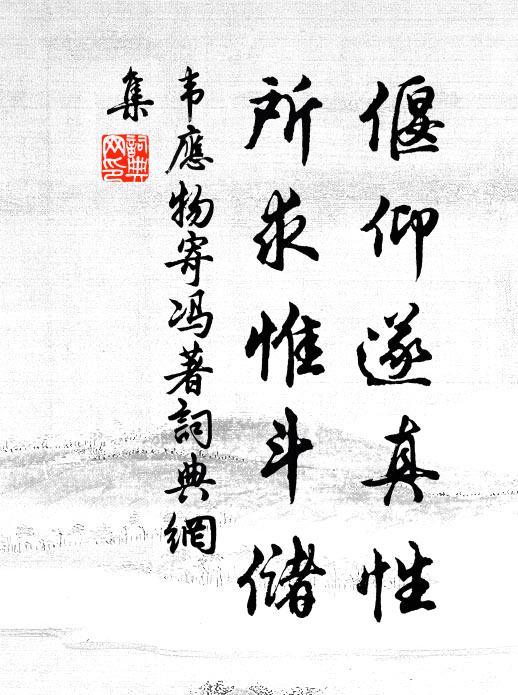 偃仰遂真性
所求惟斗储
韦應物寄冯著詞典網
集
詞典网印